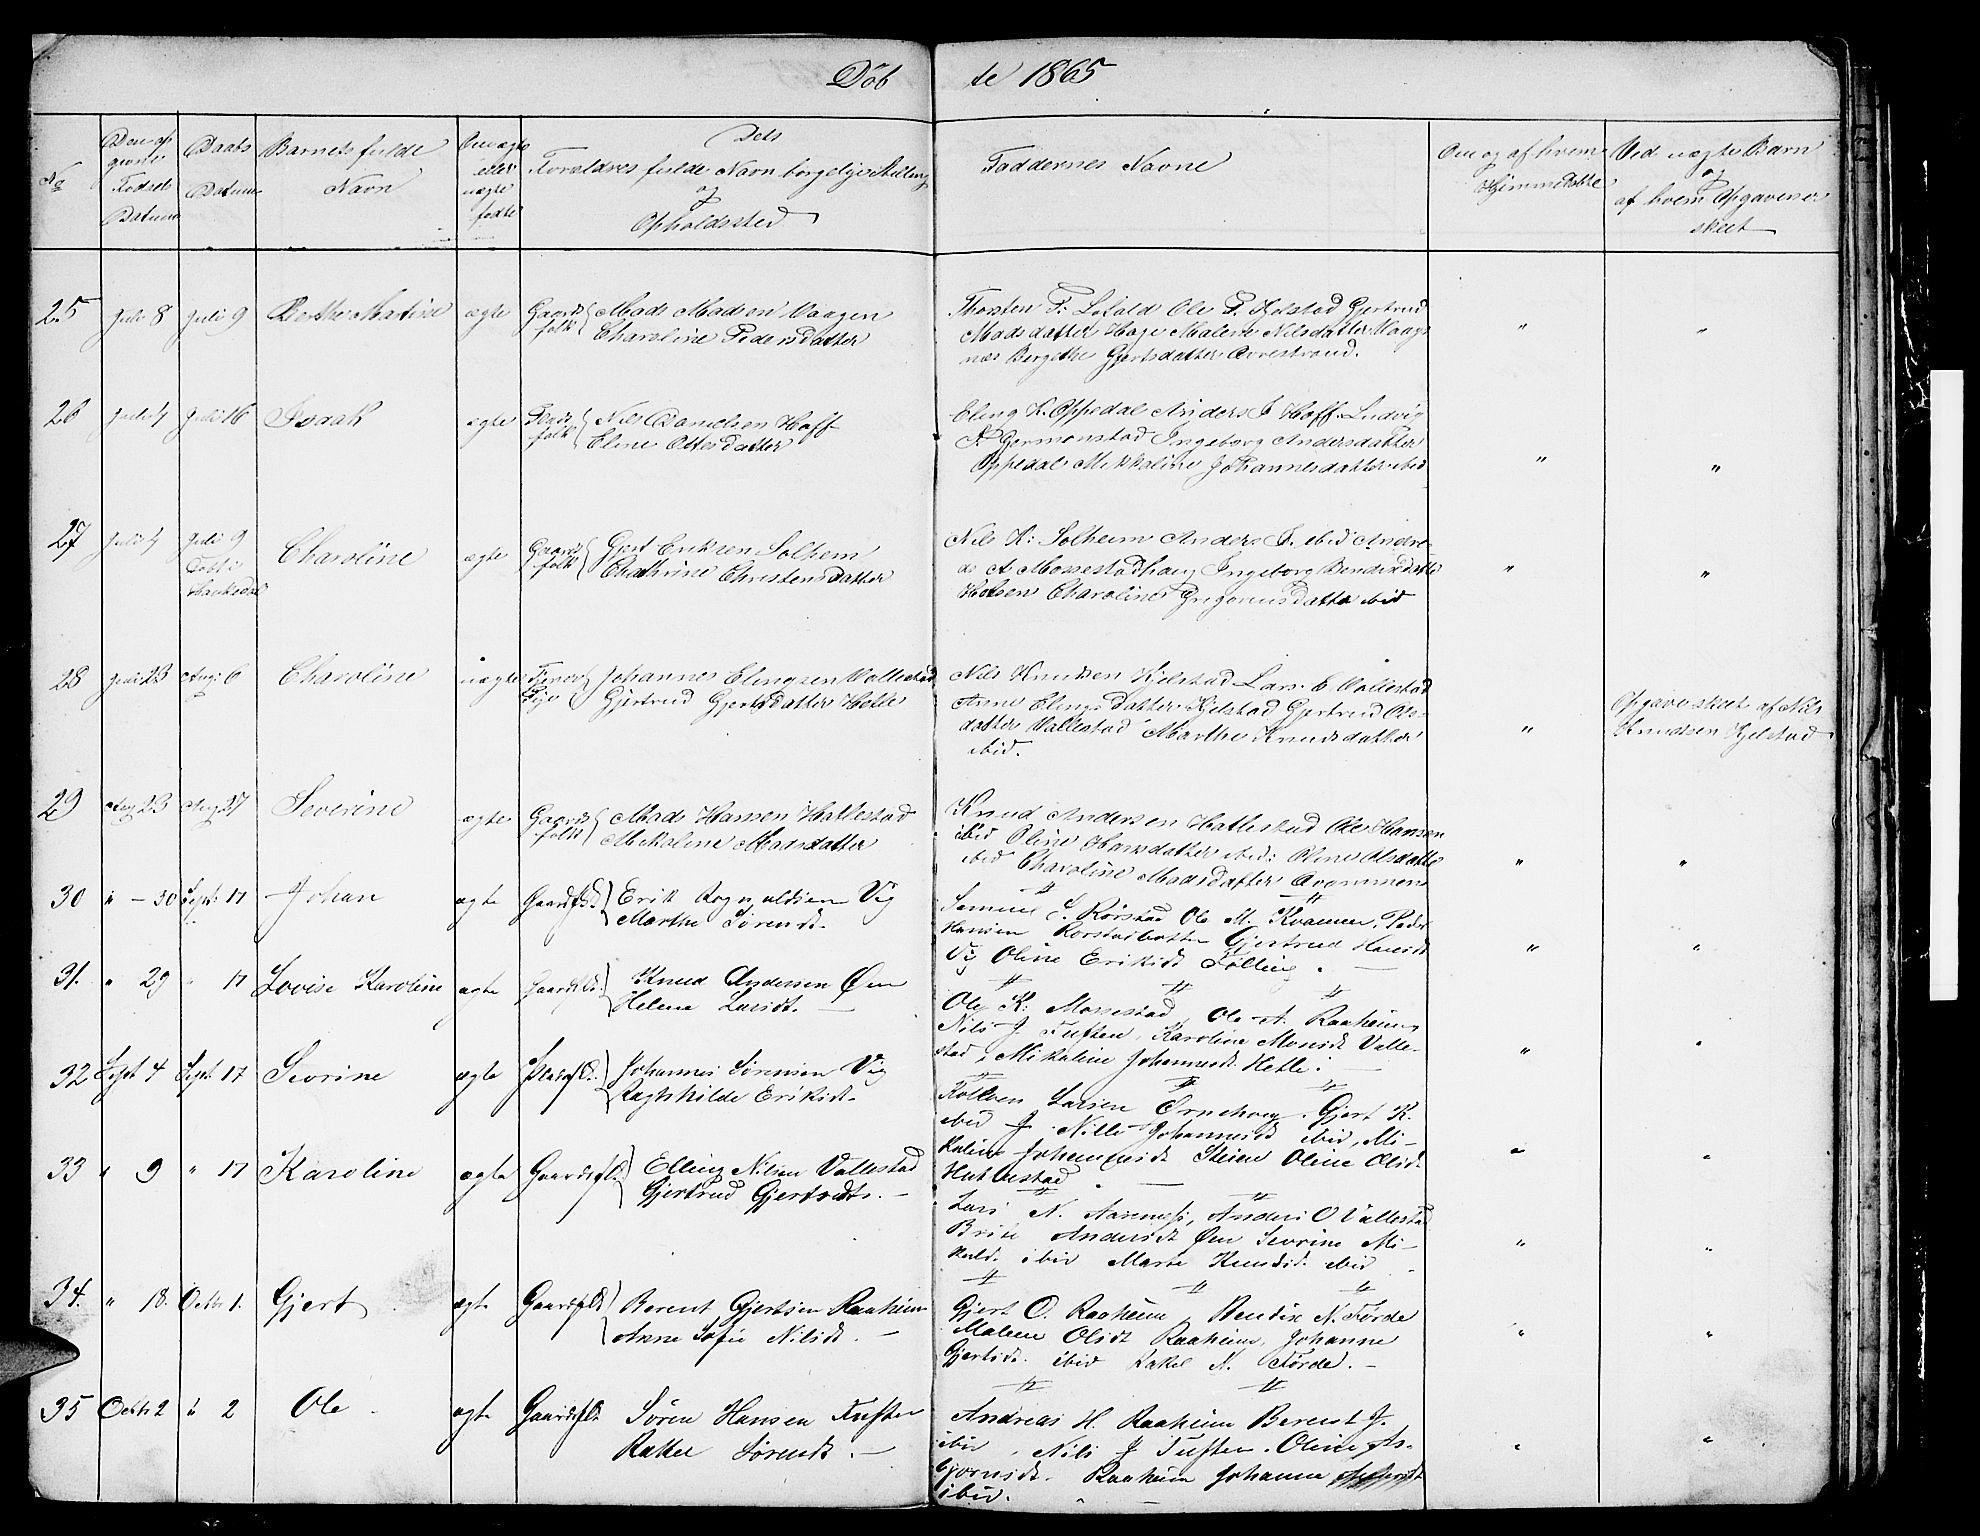 Döb te 1865
No
Den opgivne Fødsels Datum
Daabs Datum
Barnets fulde Navn
Om ægte eller uægte fødte
Dets Forældres fulde Navn borgelige Stilling og Opholdssted
Faddernes Navne
Om og af hvem Hjemmedøbte
Ved uægte Barn og af hvem Opgaven er skeet
25 Juli 8 Juli 9 Berthe Matine ægte Gaardfolk Mads Madsen Vaagen
Charoline Pedersdatter
Thorsten P. Ole P. Hjelstad Gjertrud
Madsdatter Hage Malene Nilsdatter Vaags
næs Bergethe Gjertsdatter Aarestrand.
" "
26 Juli 4 Juli 16 Israk ægte folk Nils Danielsen Hoff
Eline Ottersdatter
Eling K. Oppedal Anders J. Hoff Ludvig
P. Germonstad Ingeborg Andersdatter
Oppedal Mikkaline Johannesdatter ibid
" "
27 Juli 4 Juli 9 Charoline ægte Gaardfolk Gjert Eriksen Solhem
Chathrine Christensdatter
Nils A: Solheim Anders J. ibid Andre
as A Mossestadhaug Ingeborg Bendixdatte
Holsen Charoline Gregoriusdatter ibid
" "
28 Juli 23 Aug: 6 Charoline uægte Johannes Elingsen Vallestad
Gjertrud Gjertsdatter Hetle
Nils Knudsen Hjelstad Lars E. Vallestad
Anne Elingsdatter Hjelstad Gjertrud Ols-
datter Vallestad Marthe Knudsdatter
ibid.
"
Opgave skeet af Nils
Knudsen Hjelstad
29 Aug 23 Aug 27 Severine ægte Gaardsfolk Mads Hansen Hatlestad
Mekaline Madsdatter
Knud Andersen Hatlestad Ole Hansen
ibid Oline Hansdatter ibid: Oline Olsdatte
ibid Charoline Madsdatter
" "
30 " – 30 Sept. 17 Johan ægte Gaardsflk. Erik Rognaldsen Vig
Marthe Sørensdt.
Samuel S. Rørstad Ole M. Kvamen, Peder
Hansen Gjertrud Hansdt
Vig Oline Eriksdt Følling.
" "
31. " 29 " 17 Lovise Karoline ægte Gaardsflk. Knud Andersen Øen
Helena Larsdt.
Ole K: Mossestad, Ole A. Raaheim
Nils J Tuften, Karoline Monsdt Valle-
stad, Mikaline Johannesdt Hetle.
" "
32 Sept 4 Sept. 17 Sevrine ægte Pladsflk. Johannes Sørensen Vig
Ragnhilde Eriksdt.
Larsen Ornehoug. Gjert K.
ibid J. Nille Johannesdt ibid, Mi-
kaline Johannesdt Oline Olsdt
" "
33 " 9 " 17 Karoline ægte Gaardsflk Elling Nilsen Vallestad
Gjertrud Gjertsdt.
Lars N. Aarenæs, Anders O Vallestad
Brite Andersdt Øen Sevrine Mi-
keld. ibid Marte Knudsdt. ibid
" "
34. " 18. Octbr 1. Gjert ægte Gaardsflk Berent Gjertsen Raaheim
Anne Sofie Nilsdt.
Gjert O. Raaheim Bendix N. Førde
Malene Olsdt Raaheim, Johanne
Gjertsdt. ibid Rakel N. Førde.
" "
35 Octbr 2 " 2 Ole ægte Gaardsflk Sören Hansen Tuften
Rakel Sørensdt.
Andreas H. Raaheim Berent J.
ibid, Nils J Tuften. Oline As-
bjørnsdt. Raaheim Johanne
ibid.
" "